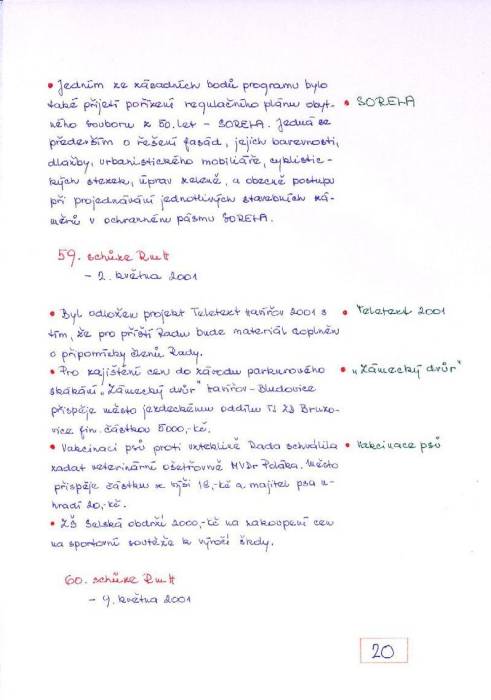 • Jedním ze zásadních bodů programu bylo
také přijetí pořízení regulačního plánu obyt-
ného souboru z 50. let - SORELA. Jedná se
především o řešení fasád, jejich barevnosti,
dlažby, urbanistického mobiliáře, cyklistic-
kých stezek, úprav zeleně, a obecně postupu
při projednávání jednotlivých stavebních zá-
měrů v ochranném pásmu SORELA.
• SORELA
59. schůze RmH
- 2. května 2001
• Byl odložen projekt Teletext Havířov 2001 s
tím, že pro příští Radu bude materiál doplněn
o připomínky členů Rady.
• Teletext 2001
• Pro zajištění cen do závodu parkurového
skákání „Zámecký dvůr" Havířov-Bludovice
přispěje město jezdeckému oddílu TJ ZD Bruzo-
vice fin. částkou 5000,-Kč.
• „Zámecký dvůr"
• Vakcinaci psů proti vzteklině Rada schválila
zadat veterinární ošetřovně MVDr Poláka. Město
přispěje částkou ve výši 18,-Kč a majitel psa u-
hradí 20,-Kč.
• Vakcinace psů
• ZŠ Selská obdrží 2000,-Kč na zakoupení cen
na sportovní soutěže k výročí školy.
60. schůze RmH
- 9. května 2001
20